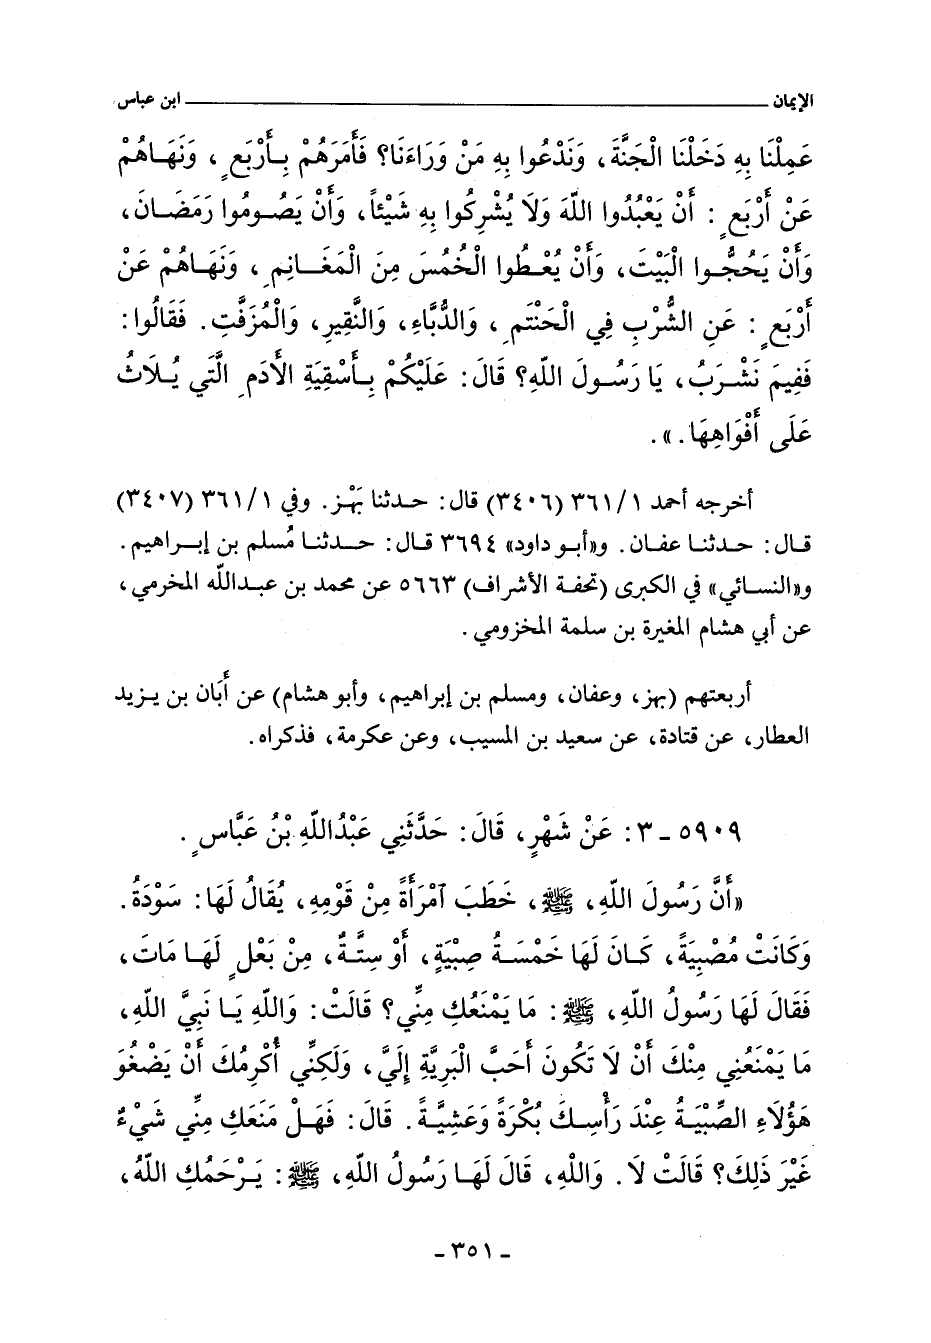 الإيمان ـــــــ ابن عباس
عَمِلْنَا بِهِ دَخَلْنَا الْجَنَّةَ، وَنَدْعُوا بِهِ مَنْ وَرَاءَنَا؟ فَأَمَرَهُمْ بِأَرْبَعٍ، وَنَهَاهُمْ
عَنْ أَرْبَعٍ: أَنْ يَعْبُدُوا اللَّهَ وَلَا يُشْرِكُوا بِهِ شَيْئاً، وَأَنْ يَصُومُوا رَمَضَانَ،
وَأَنْ يَحُجُّوا الْبَيْتَ، وَأَنْ يُعْطُوا الْخُمُسَ مِنَ الْمَغَانِمِ، وَنَهَاهُمْ عَنْ
أَرْبَعٍ: عَنِ الشُّرْبِ فِي الْحَنْتَمِ، وَالدُّبَّاءِ، وَالنَّقِيرِ، وَالْمُزَفَّتِ. فَقَالُوا:
فَفِيمَ نَشْرَبُ، يَا رَسُولَ اللَّهِ؟ قَالَ: عَلَيْكُمْ بِأَسْقِيَةِ الأَدَمِ الَّتِي يُلَاثُ
عَلَى أَفْوَاهِهَا.».
أخرجه أحمد ٣٦١/١ (٣٤٠٦) قال: حدثنا بَهْز. وفي ٣٦١/١ (٣٤٠٧)
قال: حدثنا عفان. و«أبو داود» ٣٦٩٤ قال: حدثنا مُسلم بن إبراهيم.
و«النسائي» في الكبرى (تحفة الأشراف) ٥٦٦٣ عن محمد بن عبدالله المخرمي،
عن أبي هشام المغيرة بن سلمة المخزومي.
أربعتهم (بهز، وعفان، ومسلم بن إبراهيم، وأبو هشام) عن أَبَان بن يزيد
العطار، عن قتادة، عن سعيد بن المسيب، وعن عكرمة، فذكراه.
٥٩٠٩ ـ ٣: عَنْ شَهْرٍ، قَالَ: حَدَّثَنِي عَبْدُاللَّهِ بْنُ عَبَّاسٍ.
«أَنَّ رَسُولَ اللَّهِ، ﷺ، خَطَبَ آمْرَأَةً مِنْ قَوْمِهِ، يُقَالُ لَهَا: سَوْدَةُ.
وَكَانَتْ مُصْبِيَةً، كَانَ لَهَا خَمْسَةُ صِبْيَةٍ، أَوْ سِتَّةٌ، مِنْ بَعْلٍ لَهَا مَاتَ،
فَقَالَ لَهَا رَسُولُ اللَّهِ، ﷺ: مَا يَمْنَعُكِ مِنِّي؟ قَالَتْ: وَاللَّهِ يَا نَبِيَّ اللَّهِ،
مَا يَمْنَعُنِي مِنْكَ أَنْ لَا تَكُونَ أَحَبَّ الْبَرِيَّةِ إِلَيَّ، وَلَكِنِّي أُكْرِمُكَ أَنْ يَضْغُوَ
هَؤُلَاءِ الصِّبْيَةُ عِنْدَ رَأْسِكَ بُكْرَةً وَعَشِيَّةً. قَالَ: فَهَلْ مَنَعَكِ مِنِّي شَيْءٌ
غَيْرَ ذَلِكَ؟ قَالَتْ لَا. وَاللَّهِ، قَالَ لَهَا رَسُولُ اللَّهِ، ﷺ: يَرْحَمُكِ اللَّهُ،
ـ ٣٥١ ـ